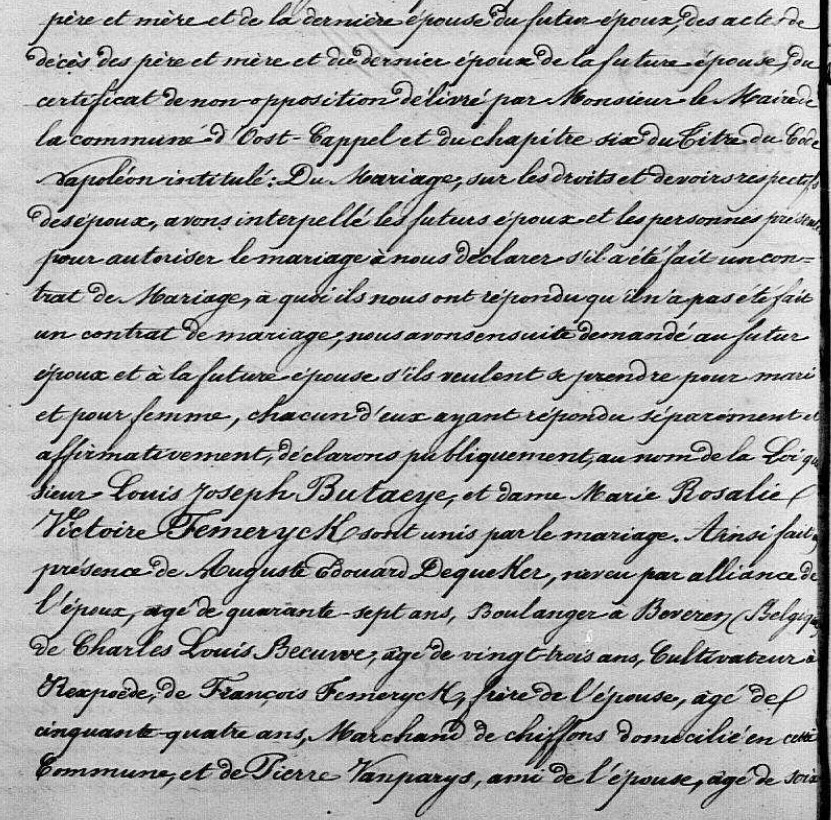 père et mère et de la dernière épouse du futur époux, des actes de
décès des père et mère et du dernier époux de la future épouse, du
certificat de non-opposition délivré par Monsieur le Maire de
la commune d'Oost-Cappel et du chapitre six du Titre du Code
Napoléon intitulé: Du Mariage, sur les droits et devoirs respectifs
des époux, avons interpellé les futurs époux et les personnes présentes
pour autoriser le mariage à nous déclarer s'il a été fait un con=
trat de Mariage, à quoi ils nous ont répondu qu'il n'a pas été fait
un contrat de mariage, nous avons ensuite demandé au futur
époux et à la future épouse s'ils veulent se prendre pour mari
et pour femme, chacun d'eux ayant répondu séparément et
affirmativement, déclarons publiquement, au nom de la Loi que
sieur Louis Joseph Butaeye, et dame Marie Rosalie
Victoire Femeryck sont unis par le mariage. Ainsi fait,
présence de Auguste Edouard Dequeker, neveu par alliance de
l'époux, âgé de quarante-sept ans, Boulanger à Beveren (Belgique
de Charles Louis Becuwe, âgé de vingt-trois ans, Cultivateur à
Rexpoëde, de François Femeryck, frère de l'épouse, âgé de
cinquante-quatre ans, Marchand de chiffons domicilié en cette
Commune, et de Pierre Vanparys, ami de l'épouse, âgé de soix